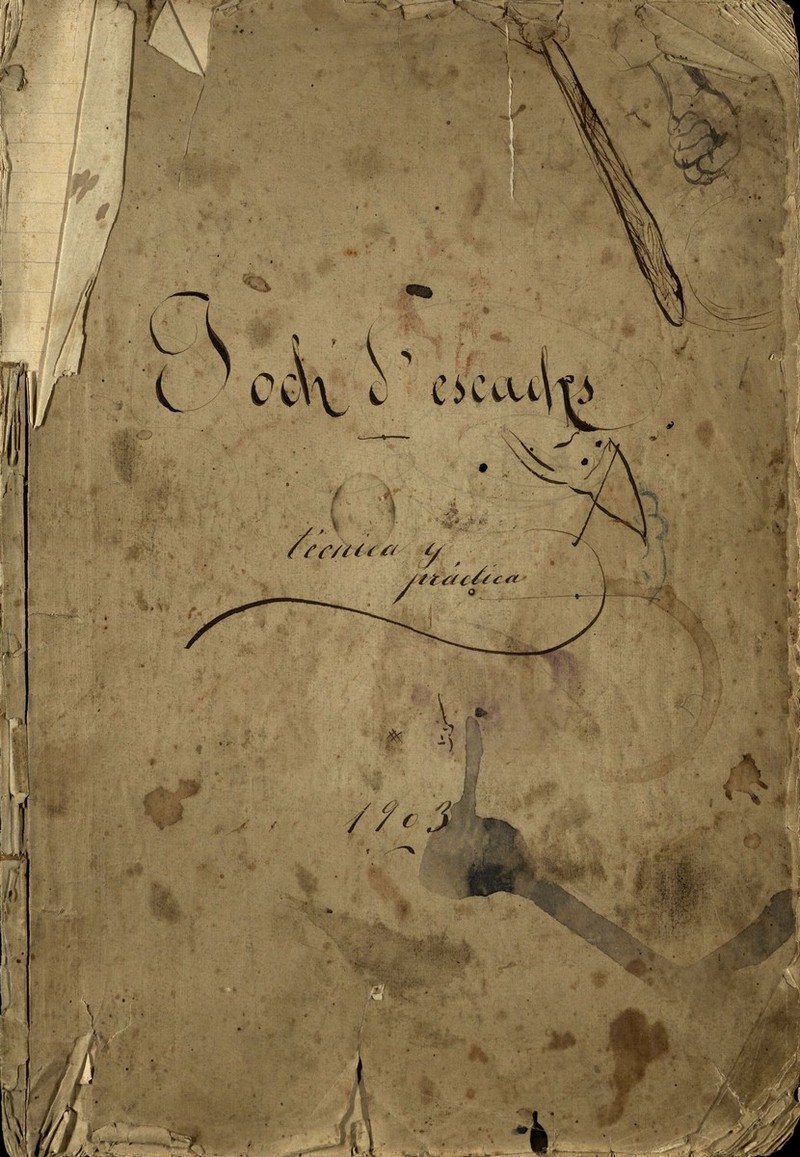 Joch d'escachs
técnica y
práctica
1903